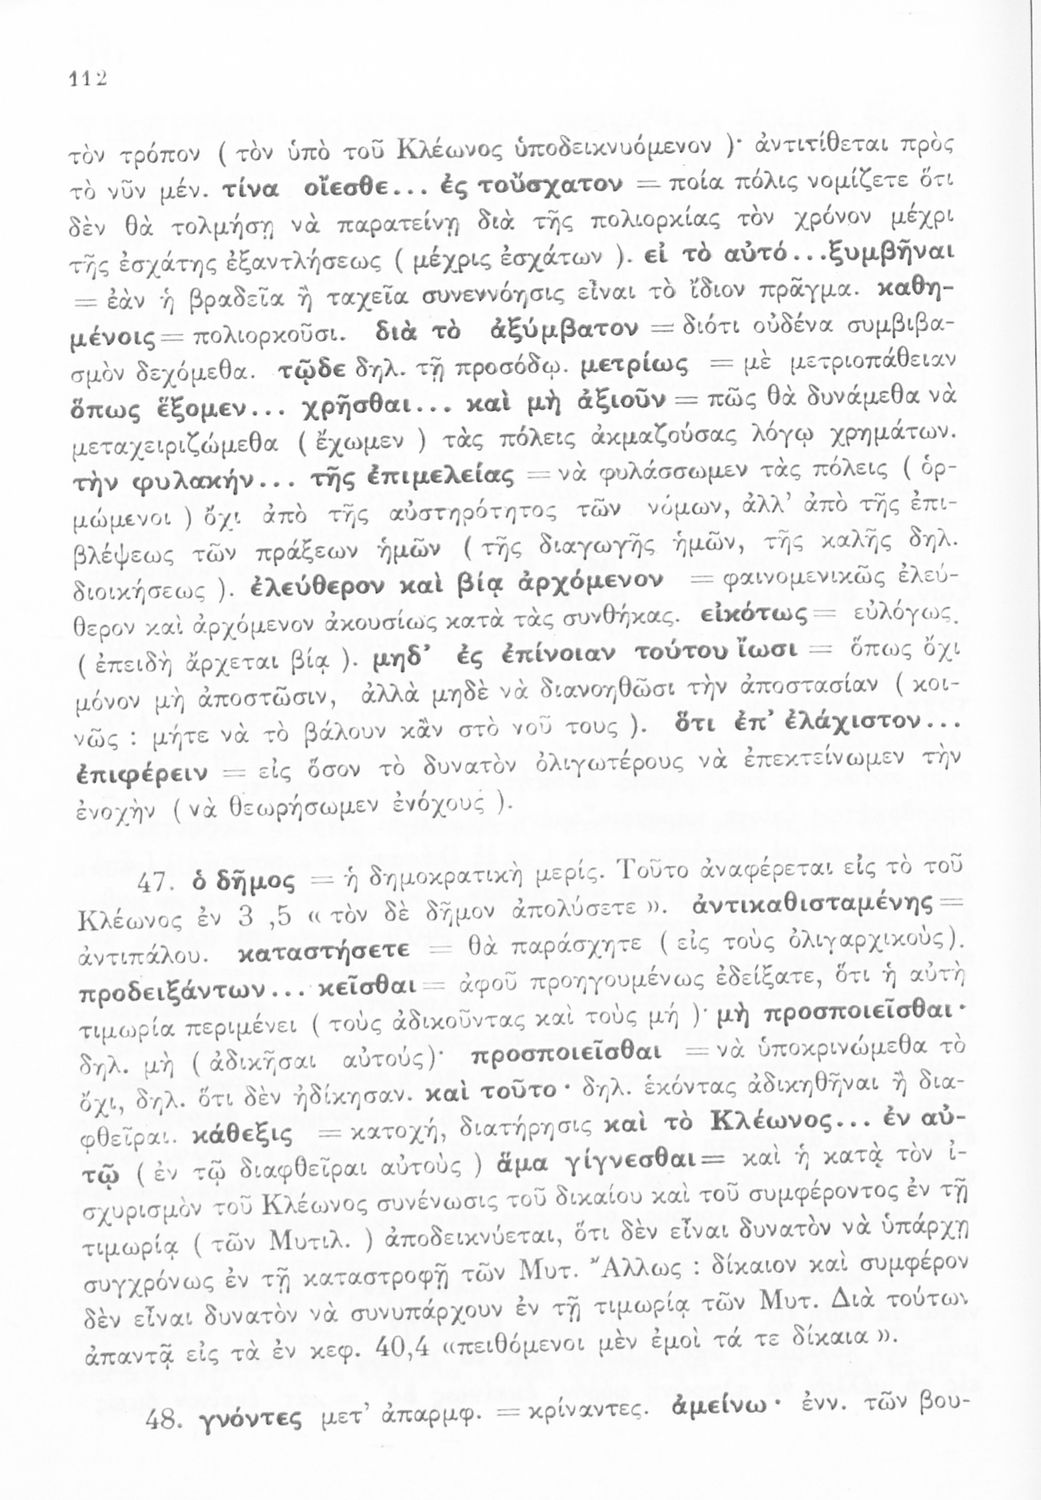 112
τὸν τρόπον ( τὸν ὑπὸ τοῦ Κλέωνος ὑποδεικνυόμενον )· ἀντιτίθεται πρὸς
τὸ νῦν μέν. τίνα οἴεσθε... ἐς τοὔσχατον = ποία πόλις νομίζετε ὅτι
δὲν θὰ τολμήσῃ νὰ παρατείνῃ διὰ τῆς πολιορκίας τὸν χρόνον μέχρι
τῆς ἐσχάτης ἐξαντλήσεως ( μέχρις ἐσχάτων ). εἰ τὸ αὐτό...ξυμβῆναι
= ἐὰν ἡ βραδεῖα ἢ ταχεῖα συνεννόησις εἶναι τὸ ἴδιον πρᾶγμα. καθη-
μένοις = πολιορκοῦσι. διὰ τὸ ἀξύμβατον = διότι οὐδένα συμβιβα-
σμὸν δεχόμεθα. τῷδε δηλ. τῇ προσόδῳ. μετρίως = μὲ μετριοπάθειαν
ὅπως ἕξομεν... χρῆσθαι... καὶ μὴ ἀξιοῦν = πῶς θὰ δυνάμεθα νὰ
μεταχειριζώμεθα ( ἔχωμεν ) τὰς πόλεις ἀκμαζούσας λόγῳ χρημάτων.
τὴν φυλακήν... τῆς ἐπιμελείας = νὰ φυλάσσωμεν τὰς πόλεις ( ὁρ-
μώμενοι ) ὄχι ἀπὸ τῆς αὐστηρότητος τῶν νόμων, ἀλλ' ἀπὸ τῆς ἐπι-
βλέψεως τῶν πράξεων ἡμῶν ( τῆς διαγωγῆς ἡμῶν, τῆς καλῆς δηλ.
διοικήσεως ). ἐλεύθερον καὶ βίᾳ ἀρχόμενον = φαινομενικῶς ἐλεύ-
θερον καὶ ἀρχόμενον ἀκουσίως κατὰ τὰς συνθήκας. εἰκότως = εὐλόγως.
( ἐπειδὴ ἄρχεται βίᾳ ). μηδ' ἐς ἐπίνοιαν τούτου ἴωσι = ὅπως ὄχι
μόνον μὴ ἀποστῶσιν, ἀλλὰ μηδὲ νὰ διανοηθῶσι τὴν ἀποστασίαν ( κοι-
νῶς : μήτε νὰ τὸ βάλουν κἂν στὸ νοῦ τους ). ὅτι ἐπ' ἐλάχιστον...
ἐπιφέρειν = εἰς ὅσον τὸ δυνατὸν ὀλιγωτέρους νὰ ἐπεκτείνωμεν τὴν
ἐνοχὴν ( νὰ θεωρήσωμεν ἐνόχους ).
47. ὁ δῆμος = ἡ δημοκρατικὴ μερίς. Τοῦτο ἀναφέρεται εἰς τὸ τοῦ
Κλέωνος ἐν 3 ,5 « τὸν δὲ δῆμον ἀπολύσετε ». ἀντικαθισταμένης =
ἀντιπάλου. καταστήσετε = θὰ παράσχητε ( εἰς τοὺς ὀλιγαρχικοὺς).
προδειξάντων... κεῖσθαι = ἀφοῦ προηγουμένως ἐδείξατε, ὅτι ἡ αὐτὴ
τιμωρία περιμένει ( τοὺς ἀδικοῦντας καὶ τοὺς μή )· μὴ προσποιεῖσθαι·
δηλ. μὴ ( ἀδικῆσαι αὐτούς)· προσποιεῖσθαι = νὰ ὑποκρινώμεθα τὸ
ὄχι, δηλ. ὅτι δὲν ἠδίκησαν. καὶ τοῦτο· δηλ. ἑκόντας ἀδικηθῆναι ἢ δια-
φθεῖραι. κάθεξις = κατοχή, διατήρησις καὶ τὸ Κλέωνος... ἐν αὐ-
τῷ ( ἐν τῷ διαφθεῖραι αὐτοὺς ) ἅμα γίγνεσθαι = καὶ ἡ κατὰ τὸν ἰ-
σχυρισμὸν τοῦ Κλέωνος συνένωσις τοῦ δικαίου καὶ τοῦ συμφέροντος ἐν τῇ
τιμωρίᾳ ( τῶν Μυτιλ. ) ἀποδεικνύεται, ὅτι δὲν εἶναι δυνατὸν νὰ ὑπάρχῃ
συγχρόνως ἐν τῇ καταστροφῇ τῶν Μυτ. Ἄλλως : δίκαιον καὶ συμφέρον
δὲν εἶναι δυνατὸν νὰ συνυπάρχουν ἐν τῇ τιμωρίᾳ τῶν Μυτ. Διὰ τούτων
ἀπαντᾷ εἰς τὰ ἐν κεφ. 40,4 «πειθόμενοι μὲν ἐμοὶ τά τε δίκαια ».
48. γνόντες μετ' ἀπαρμφ. = κρίναντες. ἀμείνω· ἐνν. τῶν βου-